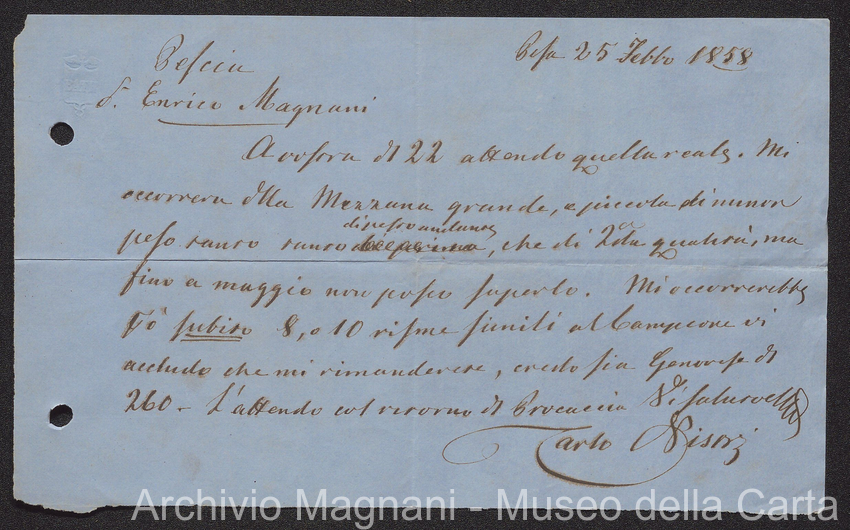 Pisa 25 Febbo 1858
Pescia
Sr. Enrico Magnani
A vostra di 22 attendo quella reale. Mi
occorrera della Mezzana grande, e piccola di minor
di peso andante
peso tanto tanto, che di 2da qualità, ma
fino a maggio non posso saperlo. Mi occorrerebbe
subito 8, o 10 risme simili al Campione vi
accludo che mi rimanderete, credo sia Genovese di
260 - L'attendo col ritorno di Procaccia Vi saluto
Carlo Nistri
Archivio Magnani - Museo della Carta